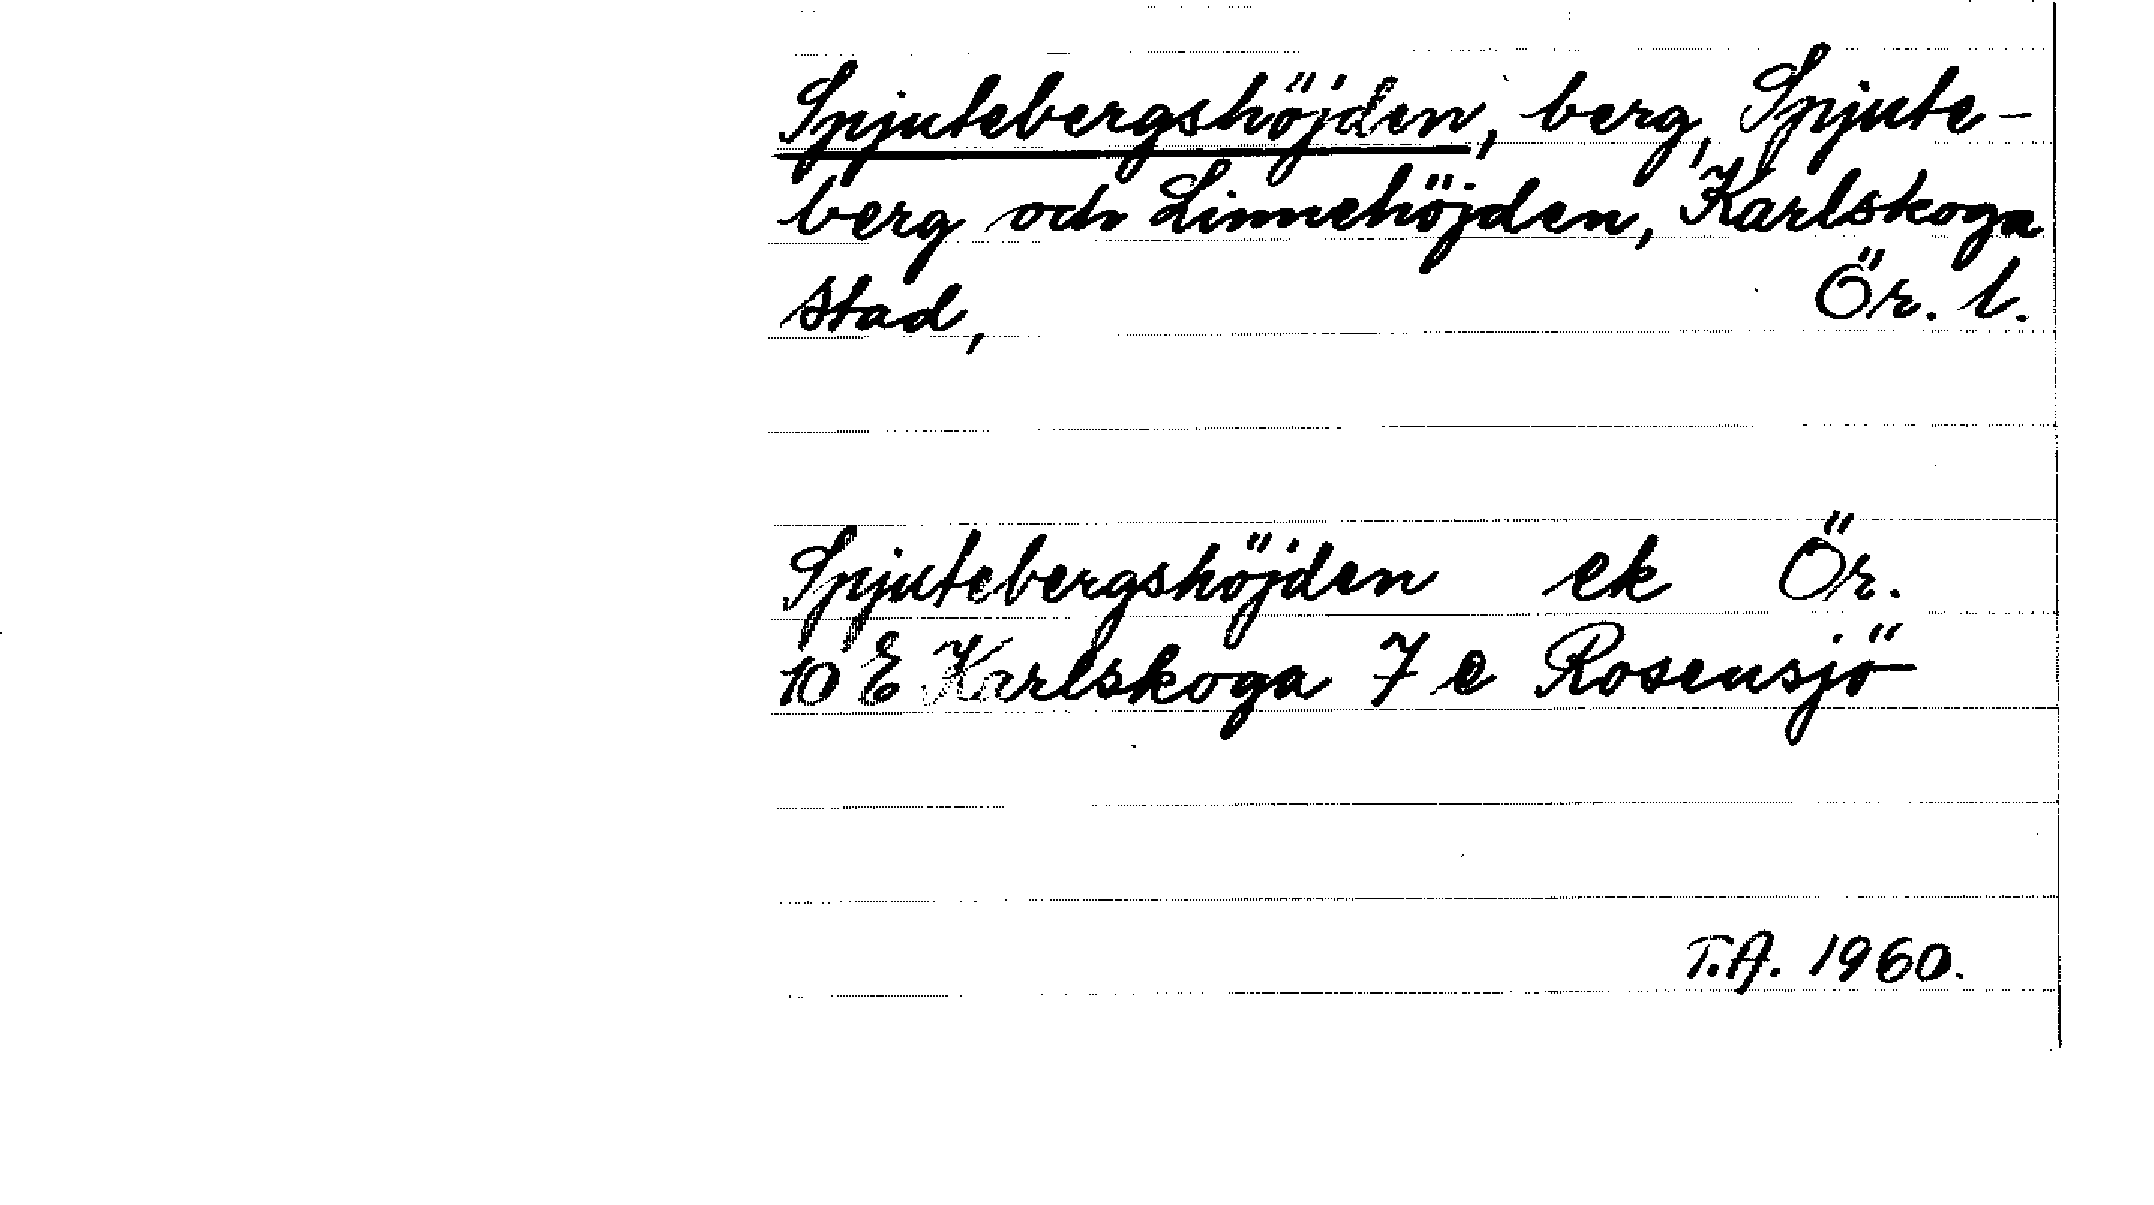 Spjutebergshöjden, berg, Spjute-
berg och Linnehöjden, Karlskoga
stad, Ör. l.
Spjutebergshöjden ek Ör.
10 E Karlskoga 7 e Rosensjö
T.A. 1960.